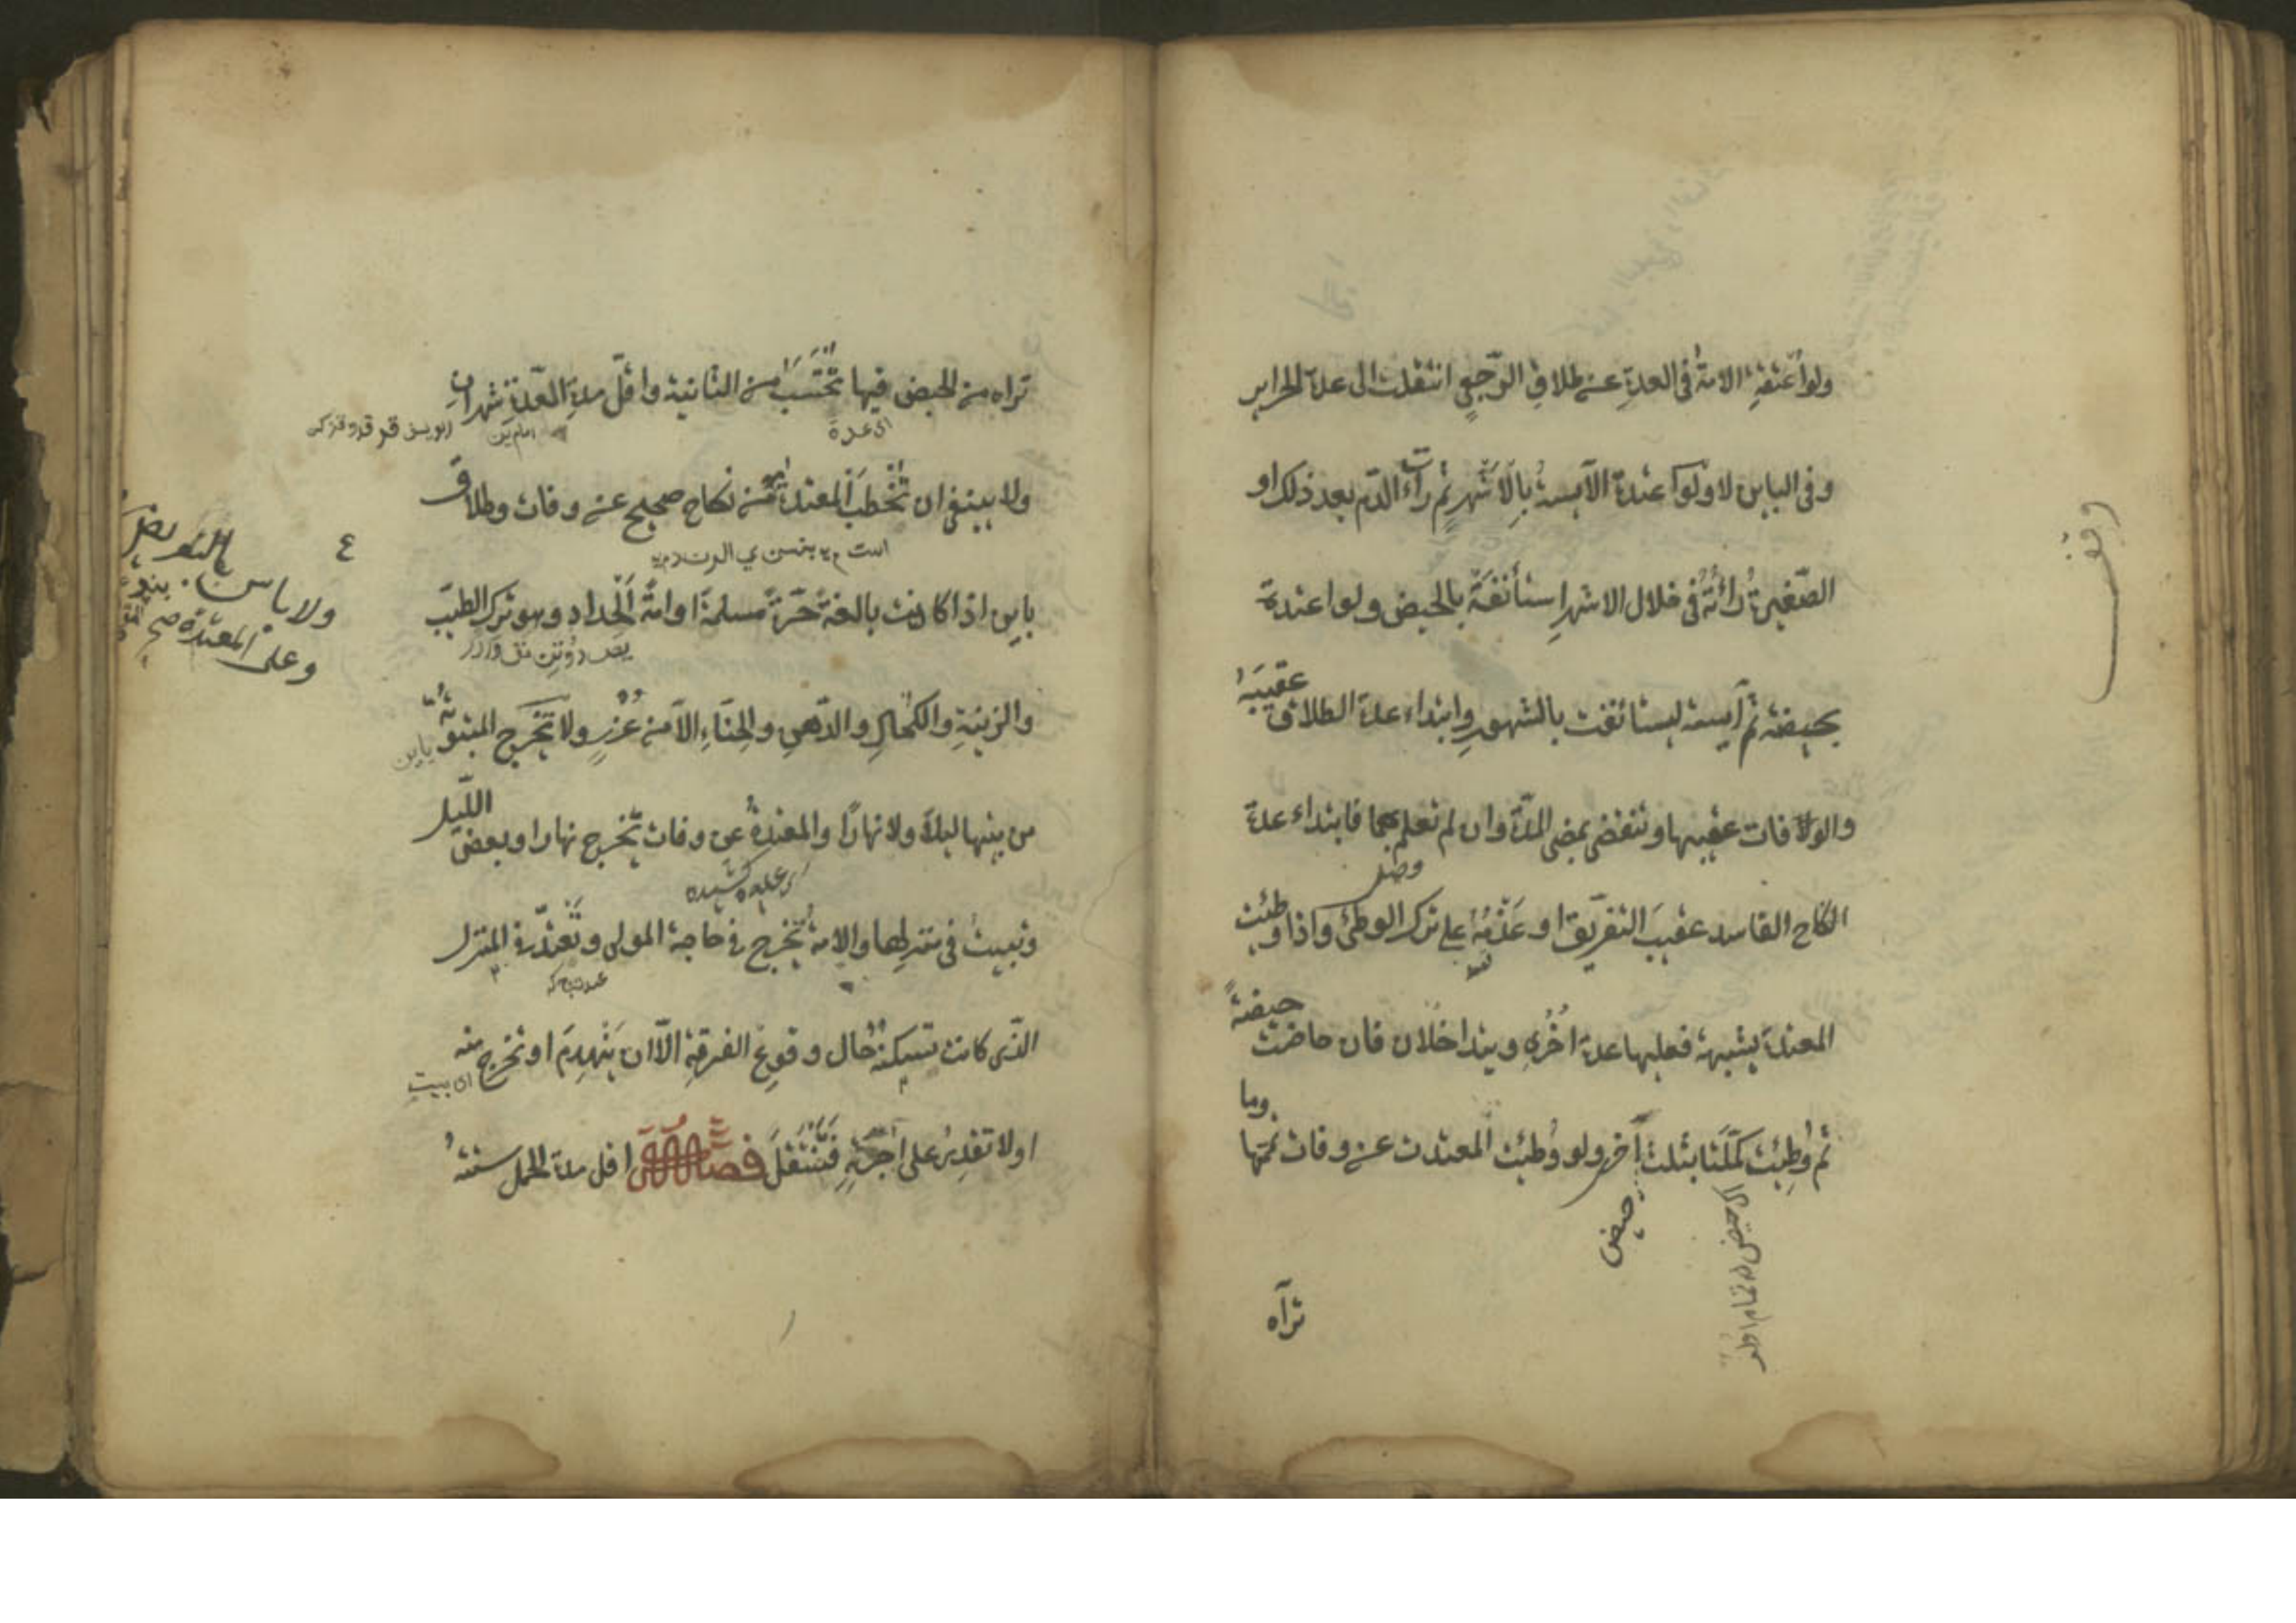 ولو أعتقت الامة فى العدة عن طلاق الرجعى انتقلت الى عدة الحراير
وفى الباين لا ولو اعتدت الآيسة بالاشهر ثم رأت الدم بعد ذلك او
الصغيرة رأته فى خلال الاشهر استأنفت بالحيض ولو اعتدت
بحيضة ثم آيست استأنفت بالشهور وابتداء عدة الطلاق عقيبه
والوفات عقيبها وتنقضى بمضى المدة وان لم تعلم بهما فابتداء عدة
النكاح الفاسد عقيب التفريق او عزمه على ترك الوطئ واذا وطئت
المعتدة بشبهة فعليها عدة اخرى ويتداخلان فان حاضت حيضة
ثم وطئت كملتا بثلث آخر ولو وطئت المعتدت عن وفات تمتها وما
حيض
تراه
وقف
تراه من الحيض فيها تحتسب من الثانية واقل مدة العدة شهران
اى عدة
ولا ينبغى ان تخطب المعتدة من نكاح صحيح عن وفات وطلاق
باين اذا كانت بالغة حرة مسلمة او امة الحداد وهو ترك الطيب
والزينة والكحل والدهن والحناء الا من عذر ولا تخرج المبتوتة
باين
من بيتها ليلا ولا نهارا والمعتدة عن وفات تخرج نهارا وبعض الليل
وتبيت فى منزلها والامة تخرج فى حاجة المولى وتعتد فى المنزل
الذى كانت تسكنه حال وقوع الفرقة الا ان ينهدم او تخرج منه
اى بيت
او لا تقدر على اجرته فتنتقل فصل اقل مدة الحمل ستة
٤
ولا باس بالتعريض
وعلى المعتدة صح